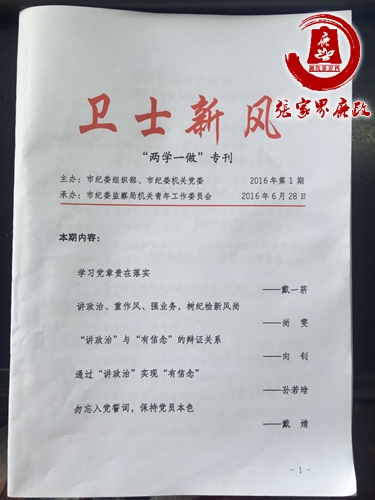 张家界廉政
卫士新风
“两学一做”专刊
主办：市纪委组织部、市纪委机关党委 2016年第1期
承办：市纪委监察局机关青年工作委员会 2016年6月28日
本期内容：
学习党章贵在落实
——戴一菥
讲政治、重作风、强业务，树纪检新风尚
——尚 雯
“讲政治”与“有信念”的辩证关系
——向 钊
通过“讲政治”实现“有信念”
——孙若晗
勿忘入党誓词，保持党员本色
——戴 婧
- 1 -